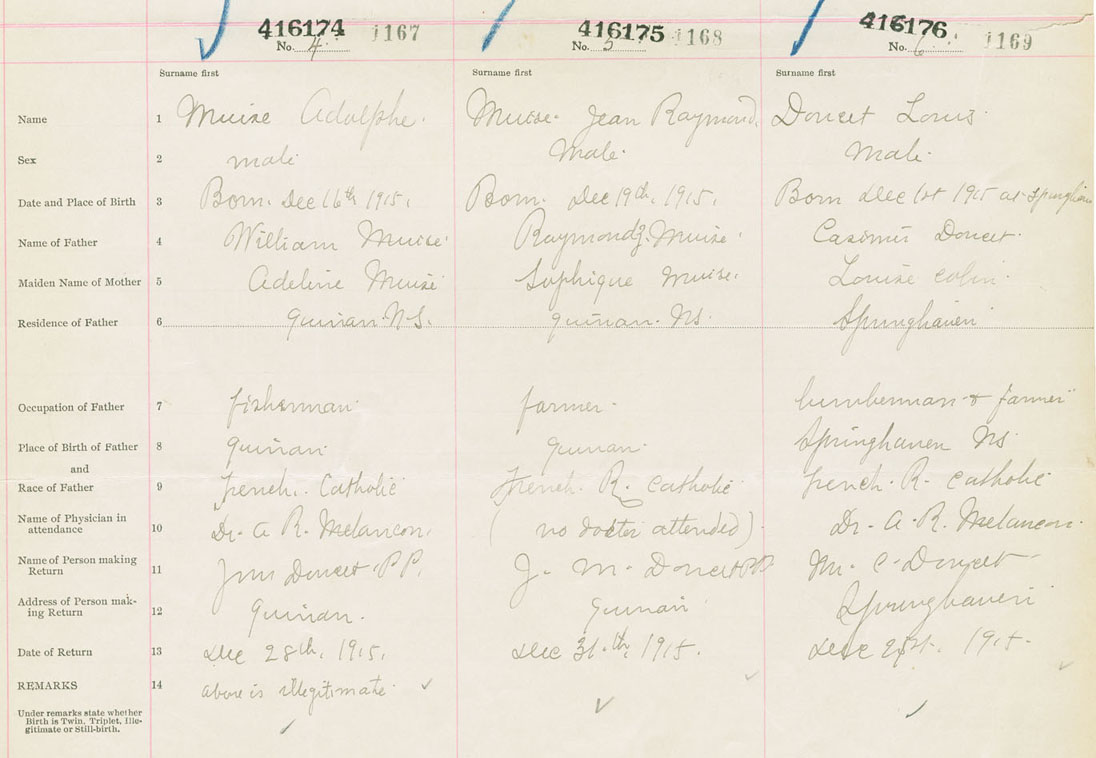 416174 1167 416175 1168 416176 1169
No. 4 No. 5 No. 6
Surname first Surname first Surname first
Name 1 Muise Adolphe. Muise. Jean Raymond. Doucet Louis.
Sex 2 male Male. Male.
Date and Place of Birth 3 Born. Dec 16th 1915. Born. Dec 19th. 1915. Born Dec 1st 1915 at Springhaven
Name of Father 4 William Muise Raymond J. Muise. Casimir Doucet.
Maiden Name of Mother 5 Adeline Muise Sophique Muise. Louise Colin.
Residence of Father 6 Quinan. N.S. Quinan. NS. Springhaven
Occupation of Father 7 fisherman farmer. lumberman & farmer
Place of Birth of Father 8 Quinan. Quinan. Springhaven NS.
and
Race of Father 9 french. Catholic French. R. Catholic french. R. Catholic
Name of Physician in
attendance 10 Dr. A R. Melancon. (no doctor attended) Dr. A. R. Melancon.
Name of Person making
Return 11 Doucet. P.P. J. M. Doucet PP Mr. C. Doucet
Address of Person mak-
ing Return 12 Quinan. Quinan Springhaven
Date of Return 13 Dec 28th. 1915. Dec 31.th. 1915. Dec 1915.
REMARKS 14 above is illegitimate
Under remarks state whether
Birth is Twin, Triplet, Ille-
gitimate or Still-birth.